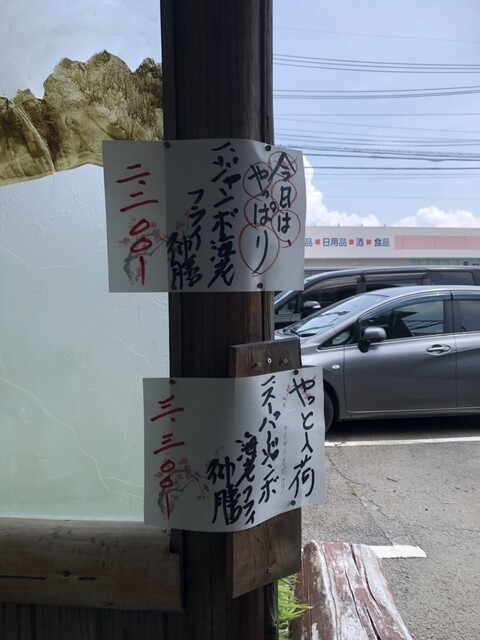 今日は、
やっぱり
ジャンボ海老
フライ
御膳
二、二〇〇ー
やっと入荷
スーパージャンボ
海老フライ
御膳
三、三〇〇ー
品■日用品■酒■食品